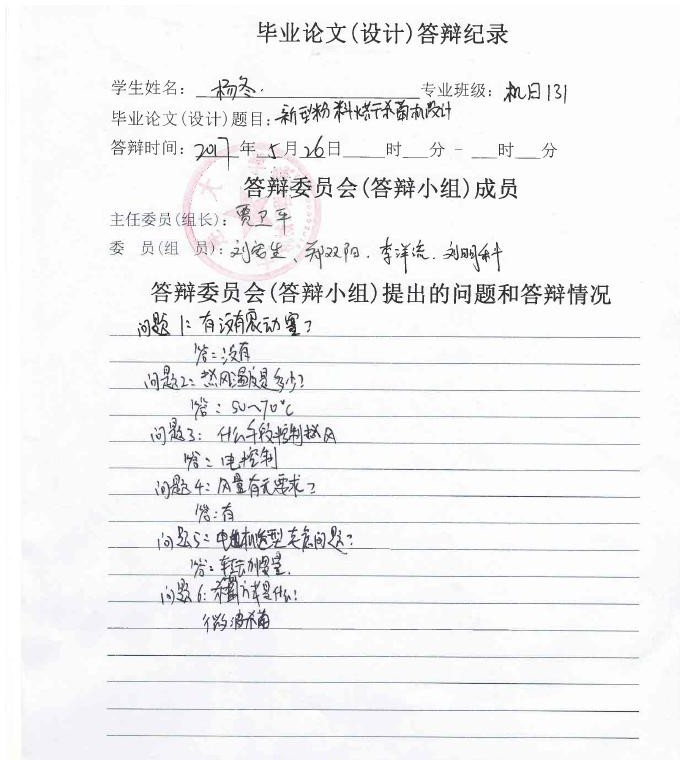 毕业论文(设计)答辩纪录
学生姓名: 杨冬. 专业班级: 机日131
毕业论文(设计)题目: 新型粉料烘干杀菌机设计
答辩时间: 2017年 5月26日 时 分 - 时 分
答辩委员会(答辩小组)成员
主任委员(组长): 贾卫平
委 员(组 员): 刘宏生、郑双阳、李洋流、刘明科
答辩委员会(答辩小组)提出的问题和答辩情况
问题1: 有没有震动室?
答: 没有
问题2: 热风温度是多少?
答: 50~70℃
问题3: 什么手段控制热风
答: 电控制
问题4: 风量有无要求?
答: 有
问题5: 电机选型考虑问题?
答:
问题6: 杀菌方式是什么?
微波杀菌